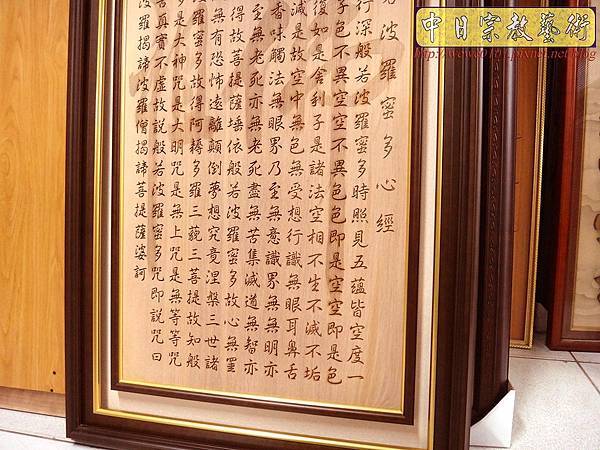 中日宗教藝術
波羅蜜多心經
行深般若波羅蜜多時照見五蘊皆空度一
子色不異空空不異色色即是空空即是色
復如是舍利子是諸法空相不生不滅不垢
減是故空中無色無受想行識無眼耳鼻舌
香味觸法無眼界乃至無意識界無無明亦
至無老死亦無老死盡無苦集滅道無智亦
得故菩提薩埵依般若波羅蜜多故心無罣
無有恐怖遠離顛倒夢想究竟涅槃三世諸
羅蜜多故得阿耨多羅三藐三菩提故知般
多是大神咒是大明咒是無上咒是無等等咒
真實不虛故說般若波羅蜜多咒即說咒曰
波羅揭諦波羅僧揭諦菩提薩婆訶